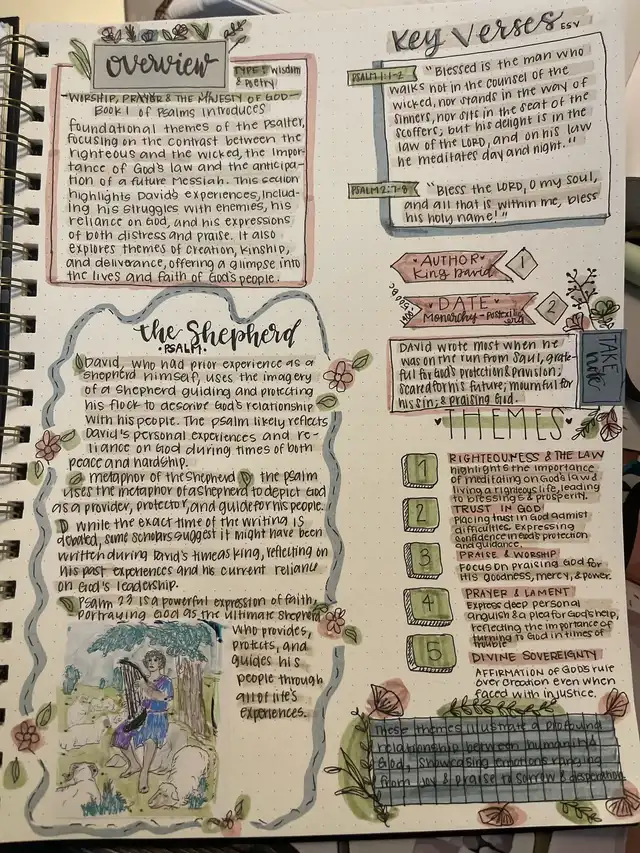 Overview
TYPE: Wisdom
& Poetry
WORSHIP, PRAYER & THE MAJESTY OF GOD
BOOK 1 OF Psalms introduces
foundational themes of the Psalter,
focusing on the contrast between the
righteous and the wicked, the impor-
tance of God's law and the anticipa-
tion of a future Messiah. This section
highlights David's experiences, includ-
ing his struggles with enemies, his
reliance on God, and his expressions
of both distress and praise. It also
explores themes of creation, kinship,
and deliverance, offering a glimpse into
the lives and faith of God's people.
the Shepherd
• PSALM •
David, who had prior experience as a
shepherd himself, uses the imagery
of a shepherd guiding and protecting
his flock to describe God's relationship
with his people. The psalm likely reflects
David's personal experiences and re-
liance on God during times of both
peace and hardship.
metaphor of the Shepherd the psalm
uses the metaphor of a shepherd to depict God
as a provider, protector, and guide for his people.
while the exact time of the writing is
debated, some scholars suggest it might have been
written during David's time as king, reflecting on
his past experiences and his current reliance
on God's leadership.
Psalm 23 is a powerful expression of faith,
portraying God as the ultimate Shepherd
who provides,
protects, and
guides his
people through
all of life's
experiences.
Key Verses ESV
PSALM 1:1-2
"Blessed is the man who
walks not in the counsel of the
wicked, nor stands in the way of
sinners, nor sits in the seat of the
scoffers; but his delight is in the
law of the LORD, and on his law
he meditates day and night."
PSALM 2:7-8
"Bless the LORD, O my soul,
and all that is within me, bless
his holy name!"
AUTHOR
King David
1
DATE
Monarchy - Postexilic
era
2
David wrote most when he
was on the run from Saul, grate-
ful for God's protection & provision;
scared for his future; mournful for
his sin; & praising God.
TAKE
note
THEMES
1
RIGHTEOUSNESS & THE LAW
highlights the importance
of meditating on God's law &
living a righteous life, leading
to blessings & prosperity.
2
TRUST IN GOD!
Placing trust in God admist
difficulties. Expressing
confidence in God's protection
and guidance.
3
PRAISE & WORSHIP
Focus on praising God for
His goodness, mercy, & power.
4
PRAYER & LAMENT
Express deep personal
anguish & a plea for God's help,
reflecting the importance of
turning to God in times of
trouble
5
DIVINE SOVEREIGNTY
AFFIRMATION OF GOD'S rule
over creation even when
faced with injustice.
These themes illustrate a profound
relationship between humanity &
God, showcasing emotions ranging
from joy & praise to sorrow & desperation.